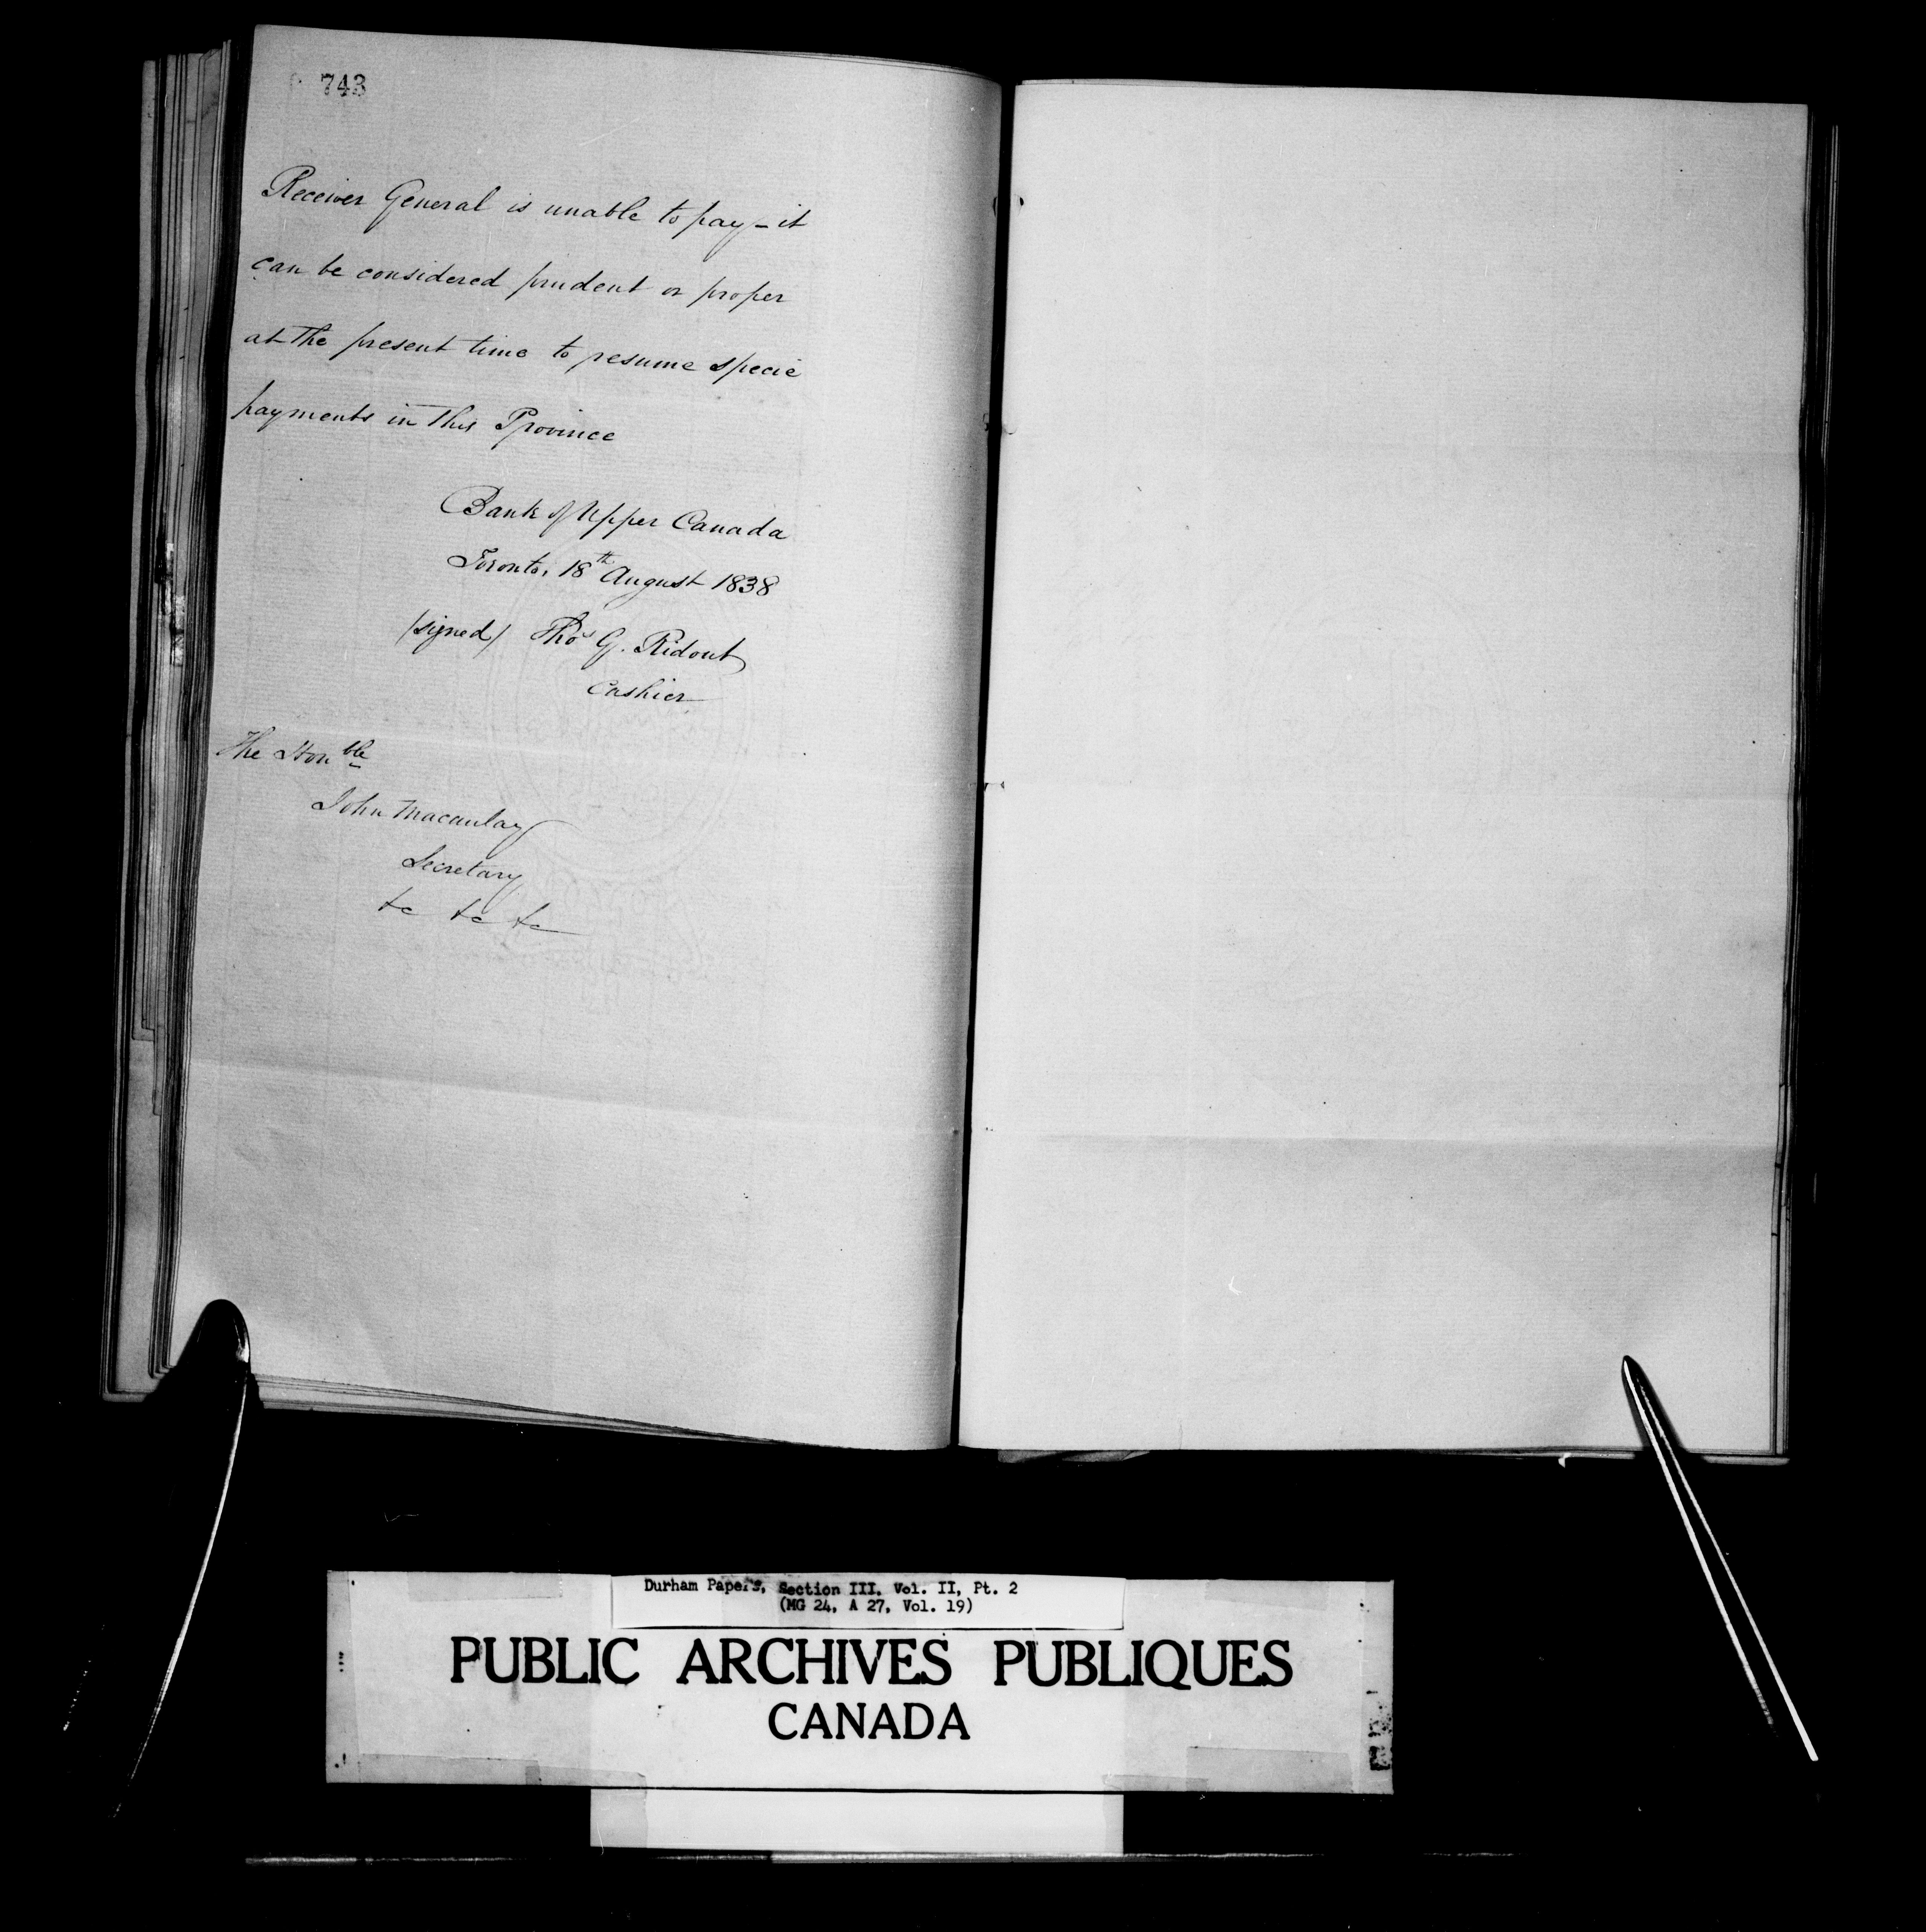 743
Receiver General is unable to pay – it
can be considered prudent or proper
at the present time to resume specie
payments in this Province
Bank of Upper Canada
Toronto, 18th August 1838
/signed/ Thos G. Ridout
Cashier
The Honble
John Macaulay
Secretary
&c &c &c
Durham Papers, Section III, Vol. II, Pt. 2
(MG 24, A 27, Vol. 19)
PUBLIC ARCHIVES PUBLIQUES
CANADA